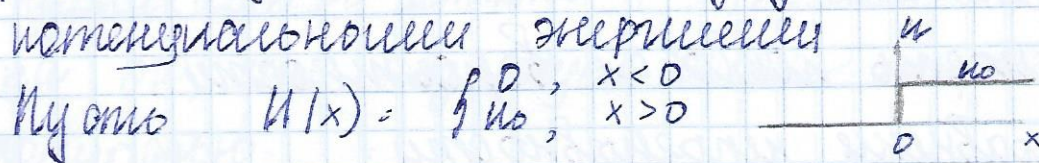 потенциальными энергиями
Пусть U(x) = { 0, x < 0
u₀, x > 0
u
u₀
0 x